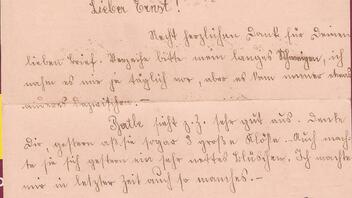 Lieber Ernst!
Recht herzlichen Dank für Deinen
lieben Brief. Verzeihe bitte mein langes Schweigen, ich
nahm es mir ja täglich vor, aber es kam immer etwas
anderes dazwischen.—
sieht z. Z. sehr gut aus. Denke
Dir, gestern aß sie sogar 3 große Klöße. Auch mach-
te sie sich gestern ein sehr nettes Blüschen. Ich machte
mir in letzter Zeit auch so manches.—